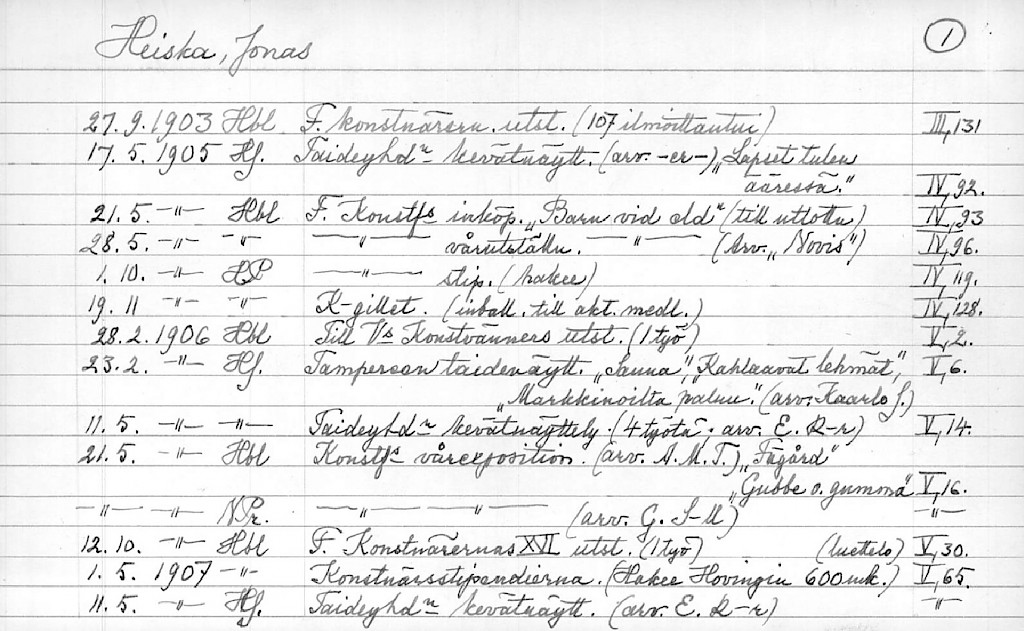 Heiska, Jonas 1
27.9.1903 Hbl F. konstnärern. utst. (107 ilmoittautui) III,131
17.5.1905 Hf. Taideyhd:n kevätnäytt. (arv. -er-) „Lapset tulen
ääressä." IV,92.
21.5. -"- Hbl F. Konstf:s inköp. „Barn vid eld" (till utlottn) IV,93
28.5. -"- -"- -"- vårutställn. -"- (Arv. „Novis") IV,96.
1.10. -"- HP -"- stip. (hakee) IV,119.
19.11 -"- -"- K-gillet. (invall. till akt. medl.) IV,128.
28.2.1906 Hbl Till V:s Konstvänners utst. (1 työ) V,2.
23.2. -"- Hf. Tampereen taidenäytt. „Sauna", „Kahlaavat lehmät", V,6.
„Markkinoilta paluu." (arv. Kaarlo J.)
11.5. -"- -"- Taideyhd:n kevätnäyttely. (4 työtä; arv. E. R-r) V,14.
21.5. -"- Hbl Konstf:s vårexposition. (arv. A.M.T.) „Fägård"
„Gubbe o. gumma" V,16.
-"- -"- N.Pr. -"- -"- (arv. G. S-ll) -"-
12.10. -"- Hbl F. Konstnärernas XVI utst. (1 työ) (luettelo) V,30.
1.5. 1907 -"- Konstnärsstipendierna. (Hakee Hovingin 600 mk.) V,65.
11.5. -"- Hf. Taideyhd:n kevätnäytt. (arv. E. R-r) -"-